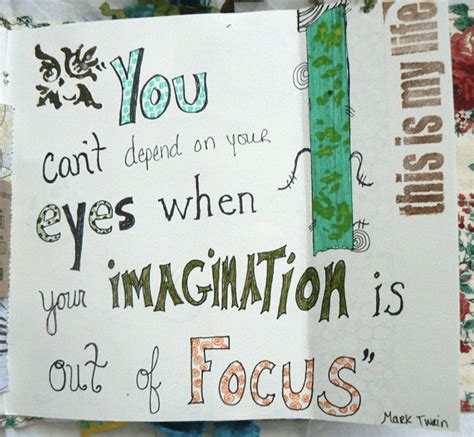 "You
can't depend on your
eyes when
your IMAGINATION is
out of FOCUS"
Mark Twain
this is my life